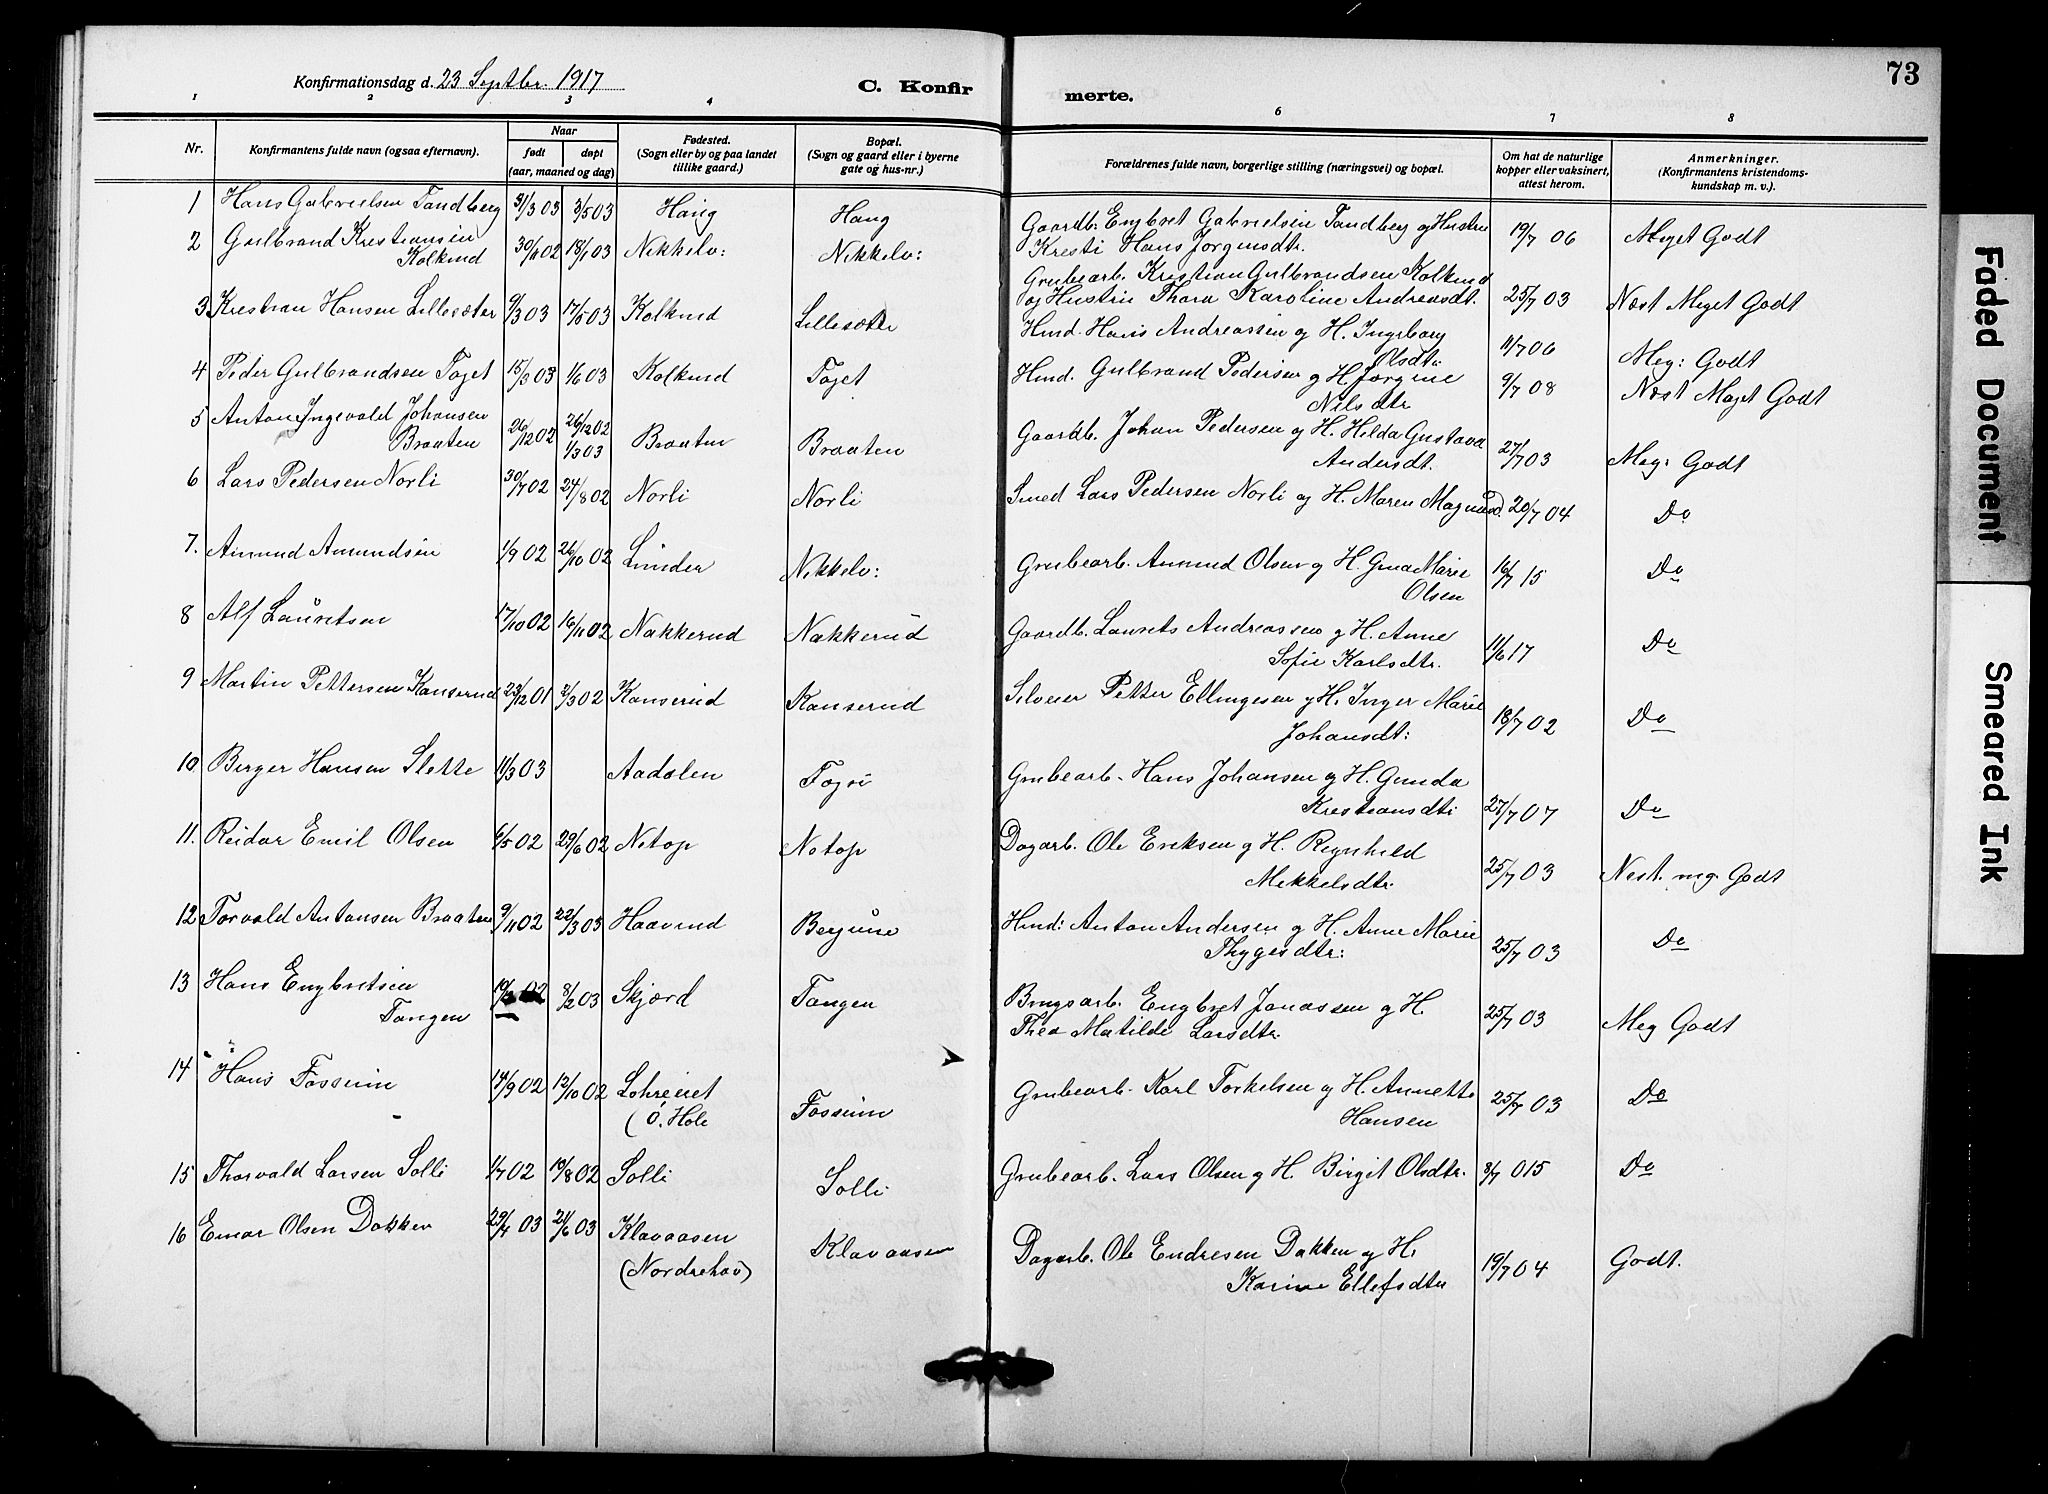 Konfirmationsdag d. 23 Septbr. 1917
C. Konfirmerte.
73
1 2 3 4 5 6 7 8
Nr.
Konfirmantens fulde navn (ogsaa efternavn).
Naar
født døpt
(aar, maaned og dag)
Fødested.
(Sogn eller by og paa landet
tillike gaard.)
Bopæl.
(Sogn og gaard eller i byerne
gate og hus-nr.)
Forældrenes fulde navn, borgerlige stilling (næringsvei) og bopæl.
Om hat de naturlige
kopper eller vaksinert,
attest herom.
Anmerkninger.
(Konfirmantens kristendoms-
kundskap m. v.).
1 Hans Gabrielsen Tandberg 31/3 03 3/5 03 Haug Haug Gaardb. Engbret Gabrielsen Tandberg og Hustru
Kresti Hans Jörgensdtr. 19/7 06 Meget Godt
2 Gulbrand Kristiansen
Kolkind 30/11 02 18/1 03 Nikkelv: Nikkelv: Grubearb. Kristian Gulbrandsen Kolkind
og Hustru Thora Karoline Andreasdt. 25/7 03 Næst Meget Godt
3 Krestian Hansen Lillesæter 9/3 03 17/5 03 Kolkind Lillesæter Hmd. Hans Andreassen og H. Ingeborg
Olsdtr 11/7 06 Meg: Godt
4 Peder Gulbrandsen Taget 15/3 03 1/6 03 Kolkind Taget Hmd. Gulbrand Pedersen og H Jørgine
Nilsdtr 9/7 08 Næst Meget Godt
5 Anton Ingevald Johansen
Braaten 26/12 02 26/12 02
1/3 03 Braaten Braaten Gaardb. Johan Pedersen og H. Hilda Gustava
Andersdt. 27/7 03 Meg: Godt
6 Lars Pedersen Norli 30/7 02 24/8 02 Norli Norli Smed Lars Pedersen Norli og H. Maren Magnusd. 20/7 04 Do
7. Amund Amundsen 1/9 02 26/10 02 Linder Nikkelv: Grubearb. Amund Olsen og H. Gina Marie
Olsen 16/7 15 Do
8 Alf Lauretsen 17/10 02 16/11 02 Nakkerud Nakkerud Gaardb. Laurets Andreassen og H. Anne
Sofie Karlsdtr. 11/6 17 Do
9 Martin Pettersen Kanserud 23/12 01 2/3 02 Kanserud Kanserud Petter Ellingesen og H. Inger Marie
Johansdt: 18/7 02 Do
10 Birger Hansen Slette 11/3 03 Aadalen Grubearb. Hans Johansen og H. Gunda
Krestiansdt: 27/7 07 Do
11. Reidar Emil Olsen 6/5 02 29/6 02 Netop Netop Dagarb. Ole Eriksen og H. Regnhild
Mekkelsdtr. 25/7 03 Nest. meg. Godt
12 Torvald Antonsen Braaten 9/11 02 22/3 03 Haavind Hmd: Anton Andersen og H. Anne Marie
Thygesdtr: 25/7 03 Do
13 Hans Engbretsen
Tangen 02 8/2 03 Skjærd Tangen Brugsarb. Engbret Jonassen og H.
Thea Matilde Larsdtr. 25/7 03 Meg Godt
14 Hans Fossum 14/9 02 12/10 02
(ö. Hole Fossum Grubearb. Karl Torkelsen og H. Annette
Hansen 25/7 03 Do
15 Thorvald Larsen Solli 1/7 02 19/8 02 Solli Solli Grubearb. Lars Olsen og H. Birgit Olsdtr. 8/7 015 Do
16 Einar Olsen Dokken 29/4 03 21/6 03 Klavaasen
(Nordrehov) Klavaasen Dagarb. Ole Endresen Dakken og H.
Karine Ellefsdtr 19/7 04 Godt.
Faded Document
Smeared Ink